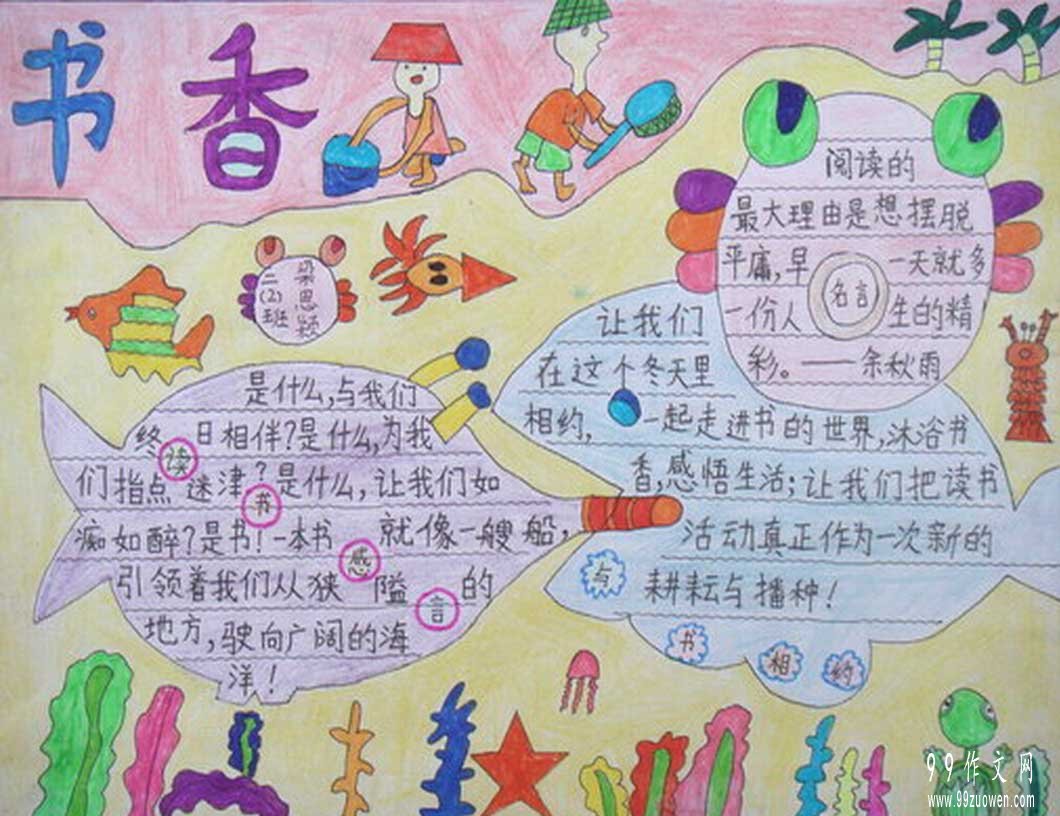 书香
二(2)班
梁思颖
阅读的
最大理由是想摆脱
平庸,早一天就多
一份人生的精
彩。——余秋雨
名言
是什么,与我们
终日相伴?是什么,为我
们指点迷津?是什么,让我们如
痴如醉?是书!一本书就像一艘船,
引领着我们从狭隘的
地方,驶向广阔的海
洋!
读书感言
让我们
在这个冬天里
相约,一起走进书的世界,沐浴书
香,感悟生活;让我们把读书
活动真正作为一次新的
耕耘与播种!
与书相约
99作文网
www.99zuowen.com